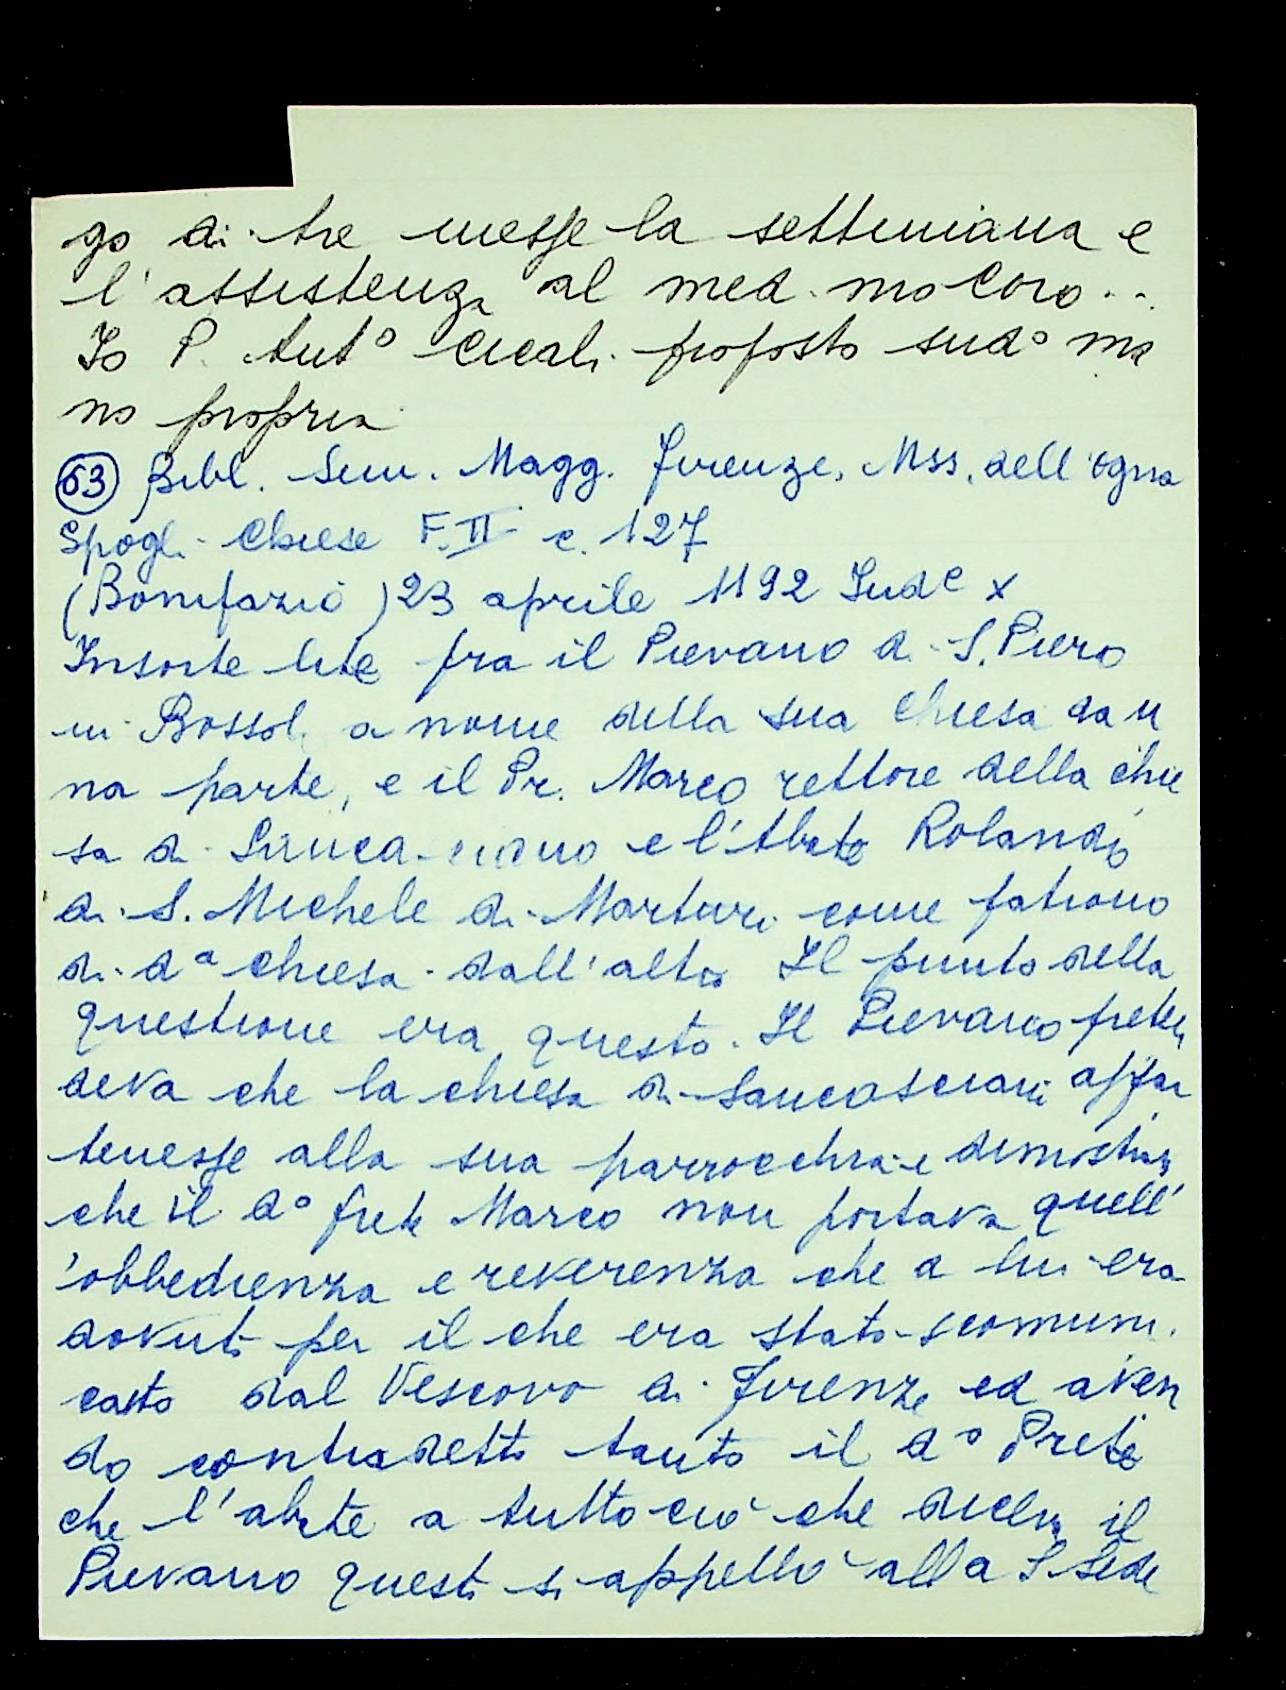 go di tre messe la settimiana e
l'assistenza al med.mo Coro..
Io P. Ant° Cicali proposto sud° ma
no propria
63 Bibl. Sem. Magg. Firenze, Mss. dell'ogna
Spogli Chiese F. II c. 127
(Bonifazio) 23 aprile 1192 Indᵉ X
Insorte lite fra il Pievano di S. Piero
in Bossoli a nome della sua chiesa da u
na parte, e il Pr. Marco rettore della chie
sa di e l'Abate Rolando
di S. Michele di Marturi come patrono
di dᵃ chiesa dall'altra Il punto della
questione era questo. Il Pievano preten
deva che la chiesa di Sancasciani appar
tenesse alla sua parrocchia e
che il d° prete Marco non portava quell'
'obbedienza e reverenza che a lui era
dovuta per il che era stato scomuni
cato dal Vescovo di Firenze ed aven
do contradetto tanto il d° Prete
che l'abate a tutto ciò che diceva il
Pievano questi si appellò alla S Sede